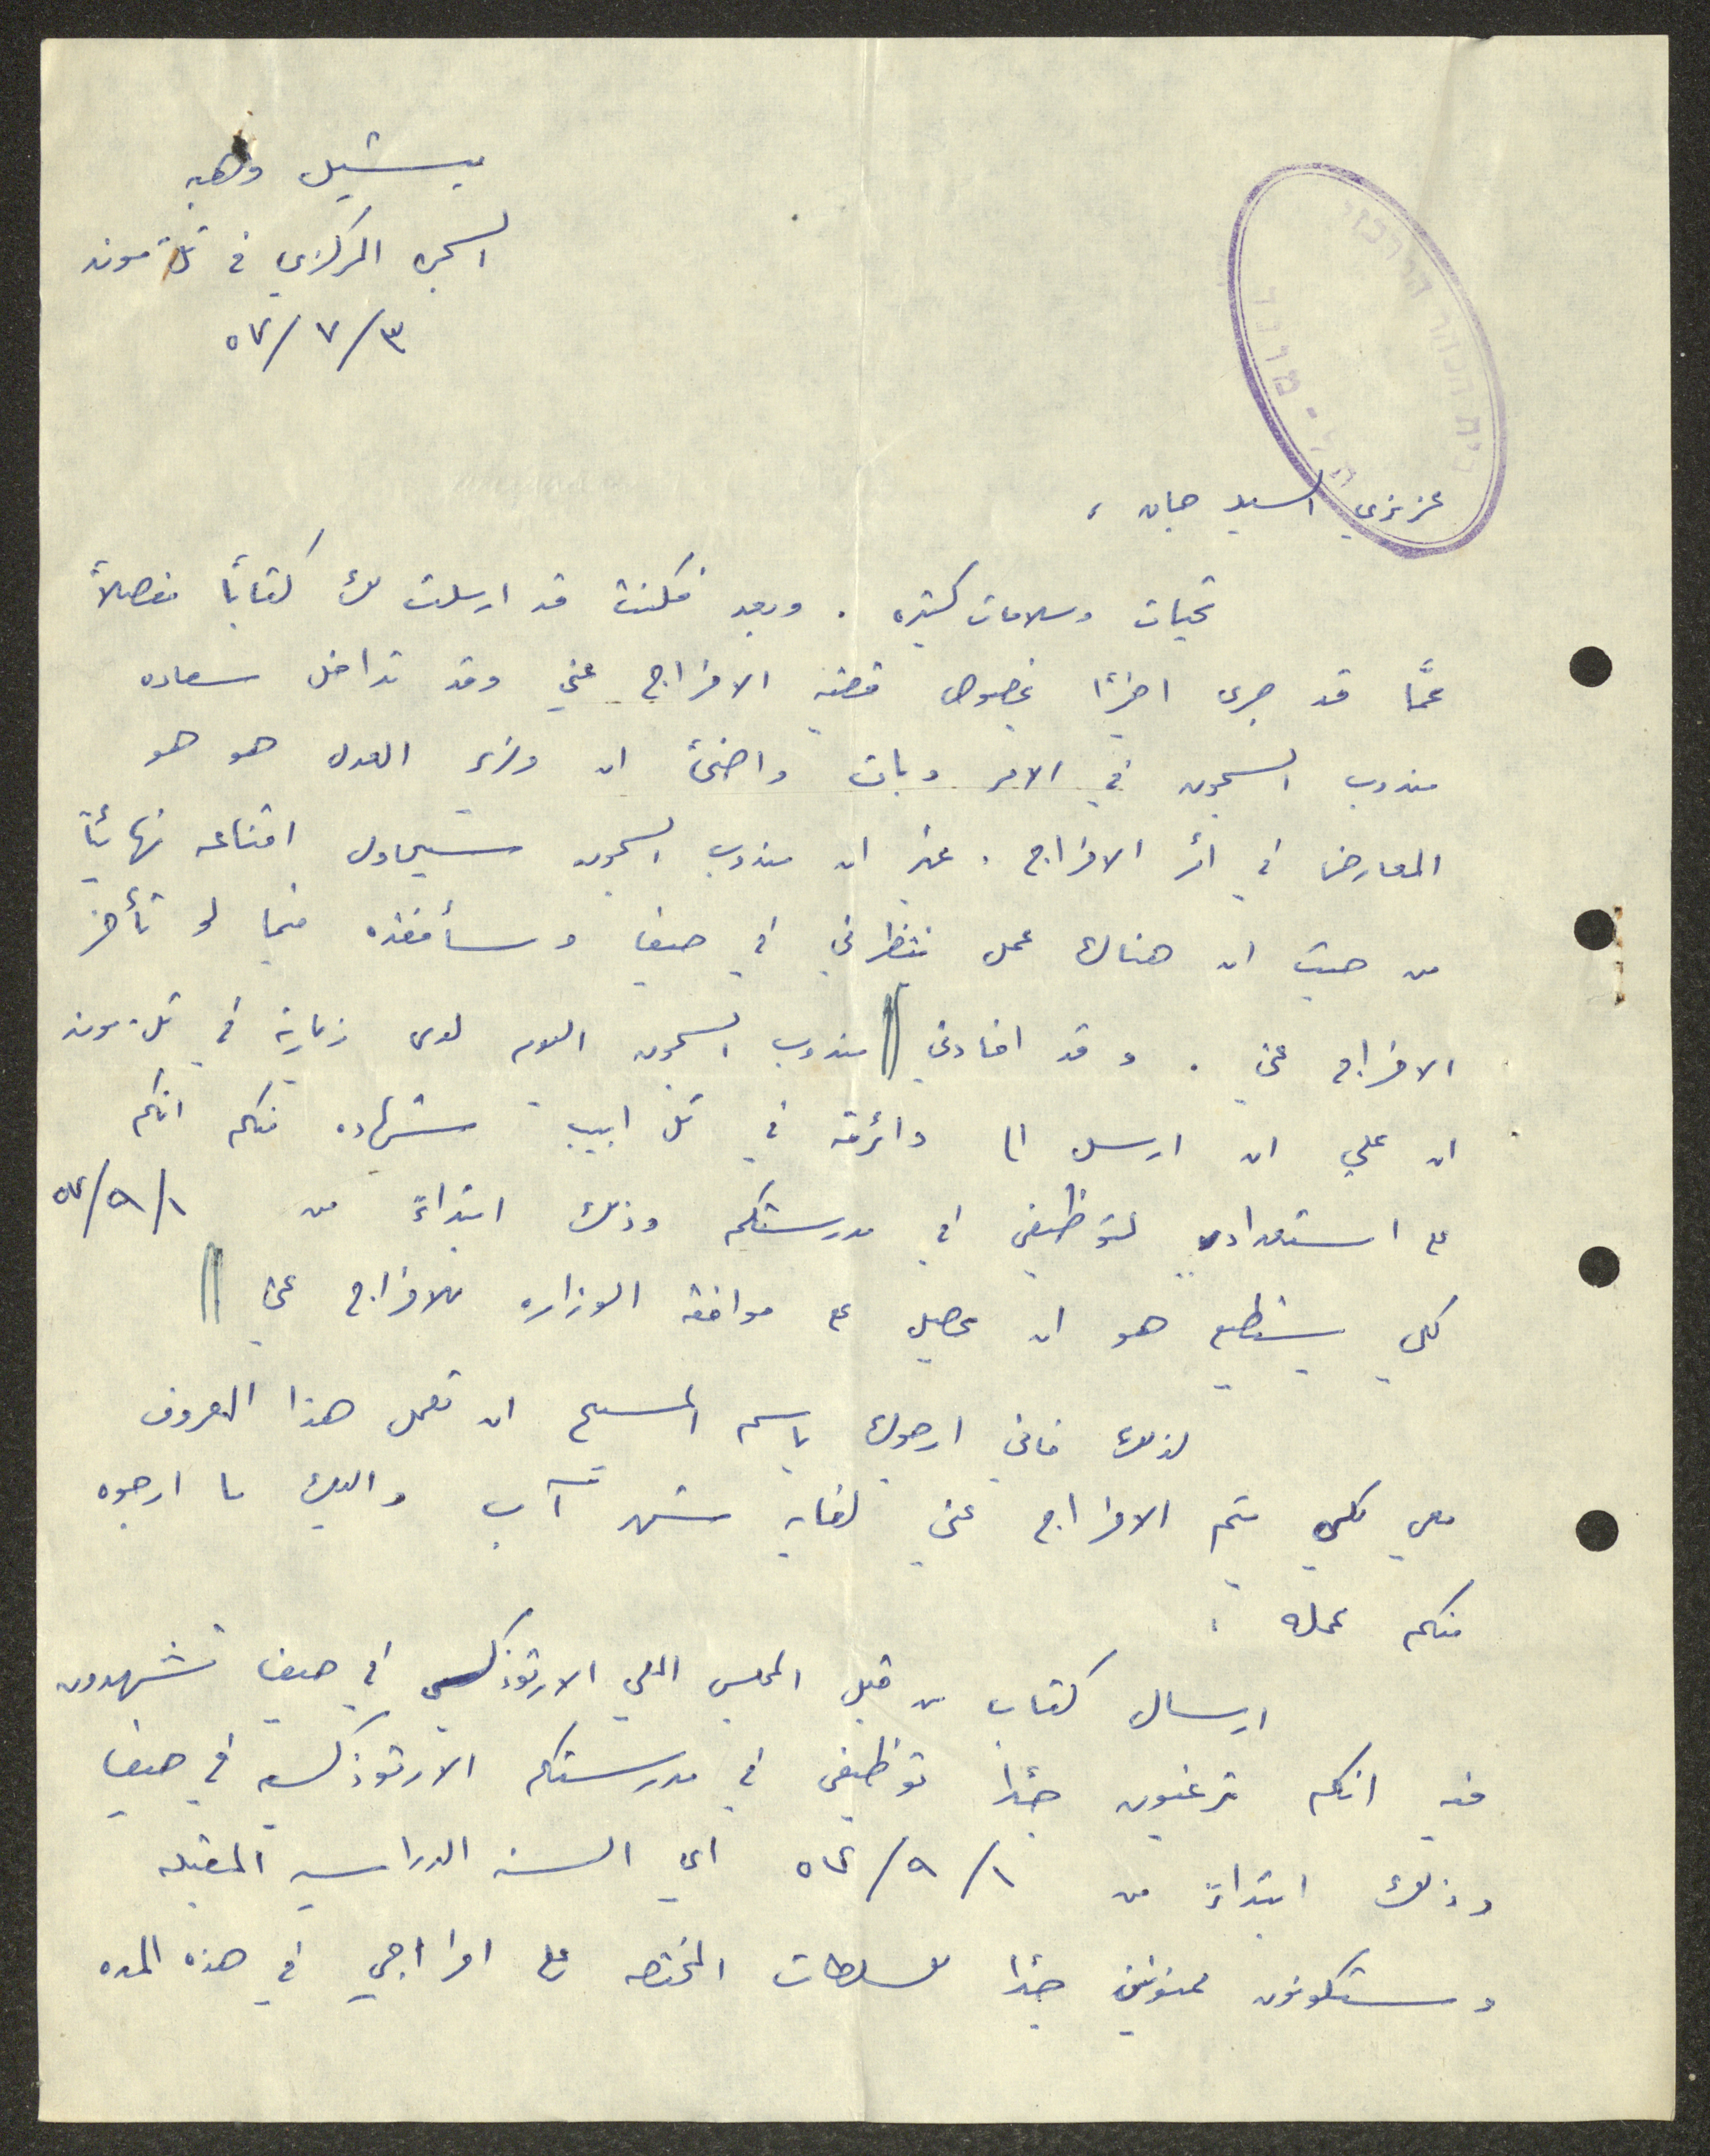 ميشيل وهبه
السجن المركزي في تل موند
٥٢/٧/٣
עזיזי السيد جان ،
تحيات وسلامات كثيره . وبعد فكنت قد ارسلت لك كتابًا مفصلاً
عمَّا قد جرى اخيرًا بخصوص قضية الافراج عني وقد تداخل سعاده
مندوب السجون في الامر وبات واضحًا ان وزير العدل هو هو
المعارض في امر الافراج . غير ان مندوب السجون سيحاول اقناعه نهائيًا
من حيث ان هناك عمل ينتظرني في حيفا وسأفقده فيما لو تأخر
الافراج عني . وقد افادني || مندوب السجون اليوم لدى زيارته في تل موند
ان علي ان ارسل الى دائرته في تل ابيب شهاده منكم انكم
على استعداد لتوظيفي في مدرستكم وذلك ابتداءً من ٥٢/٩/١
لكي يستطيع هو ان يحصل على موافقة الوزاره للافراج عني ||
لذلك فاني ارجوك باسم المسيح ان تعمل هذا المعروف
معي لكي يتم الافراج عني لغاية شهر آب واليك ما ارجوه
منكم عمله :
ارسال كتاب من قبل المجلس الملي الارثوذكسي في حيفا تشهدون
فيه انكم ترغبون جدًا توظيفي في مدرستكم الارثوذكسيه في حيفا
وذلك ابتداءً من ٥٢/٩/١ اي السنه الدراسيه المقبله
وستكونون ممنونين جدًا للسلطات المختصه على افراجي في هذه المده